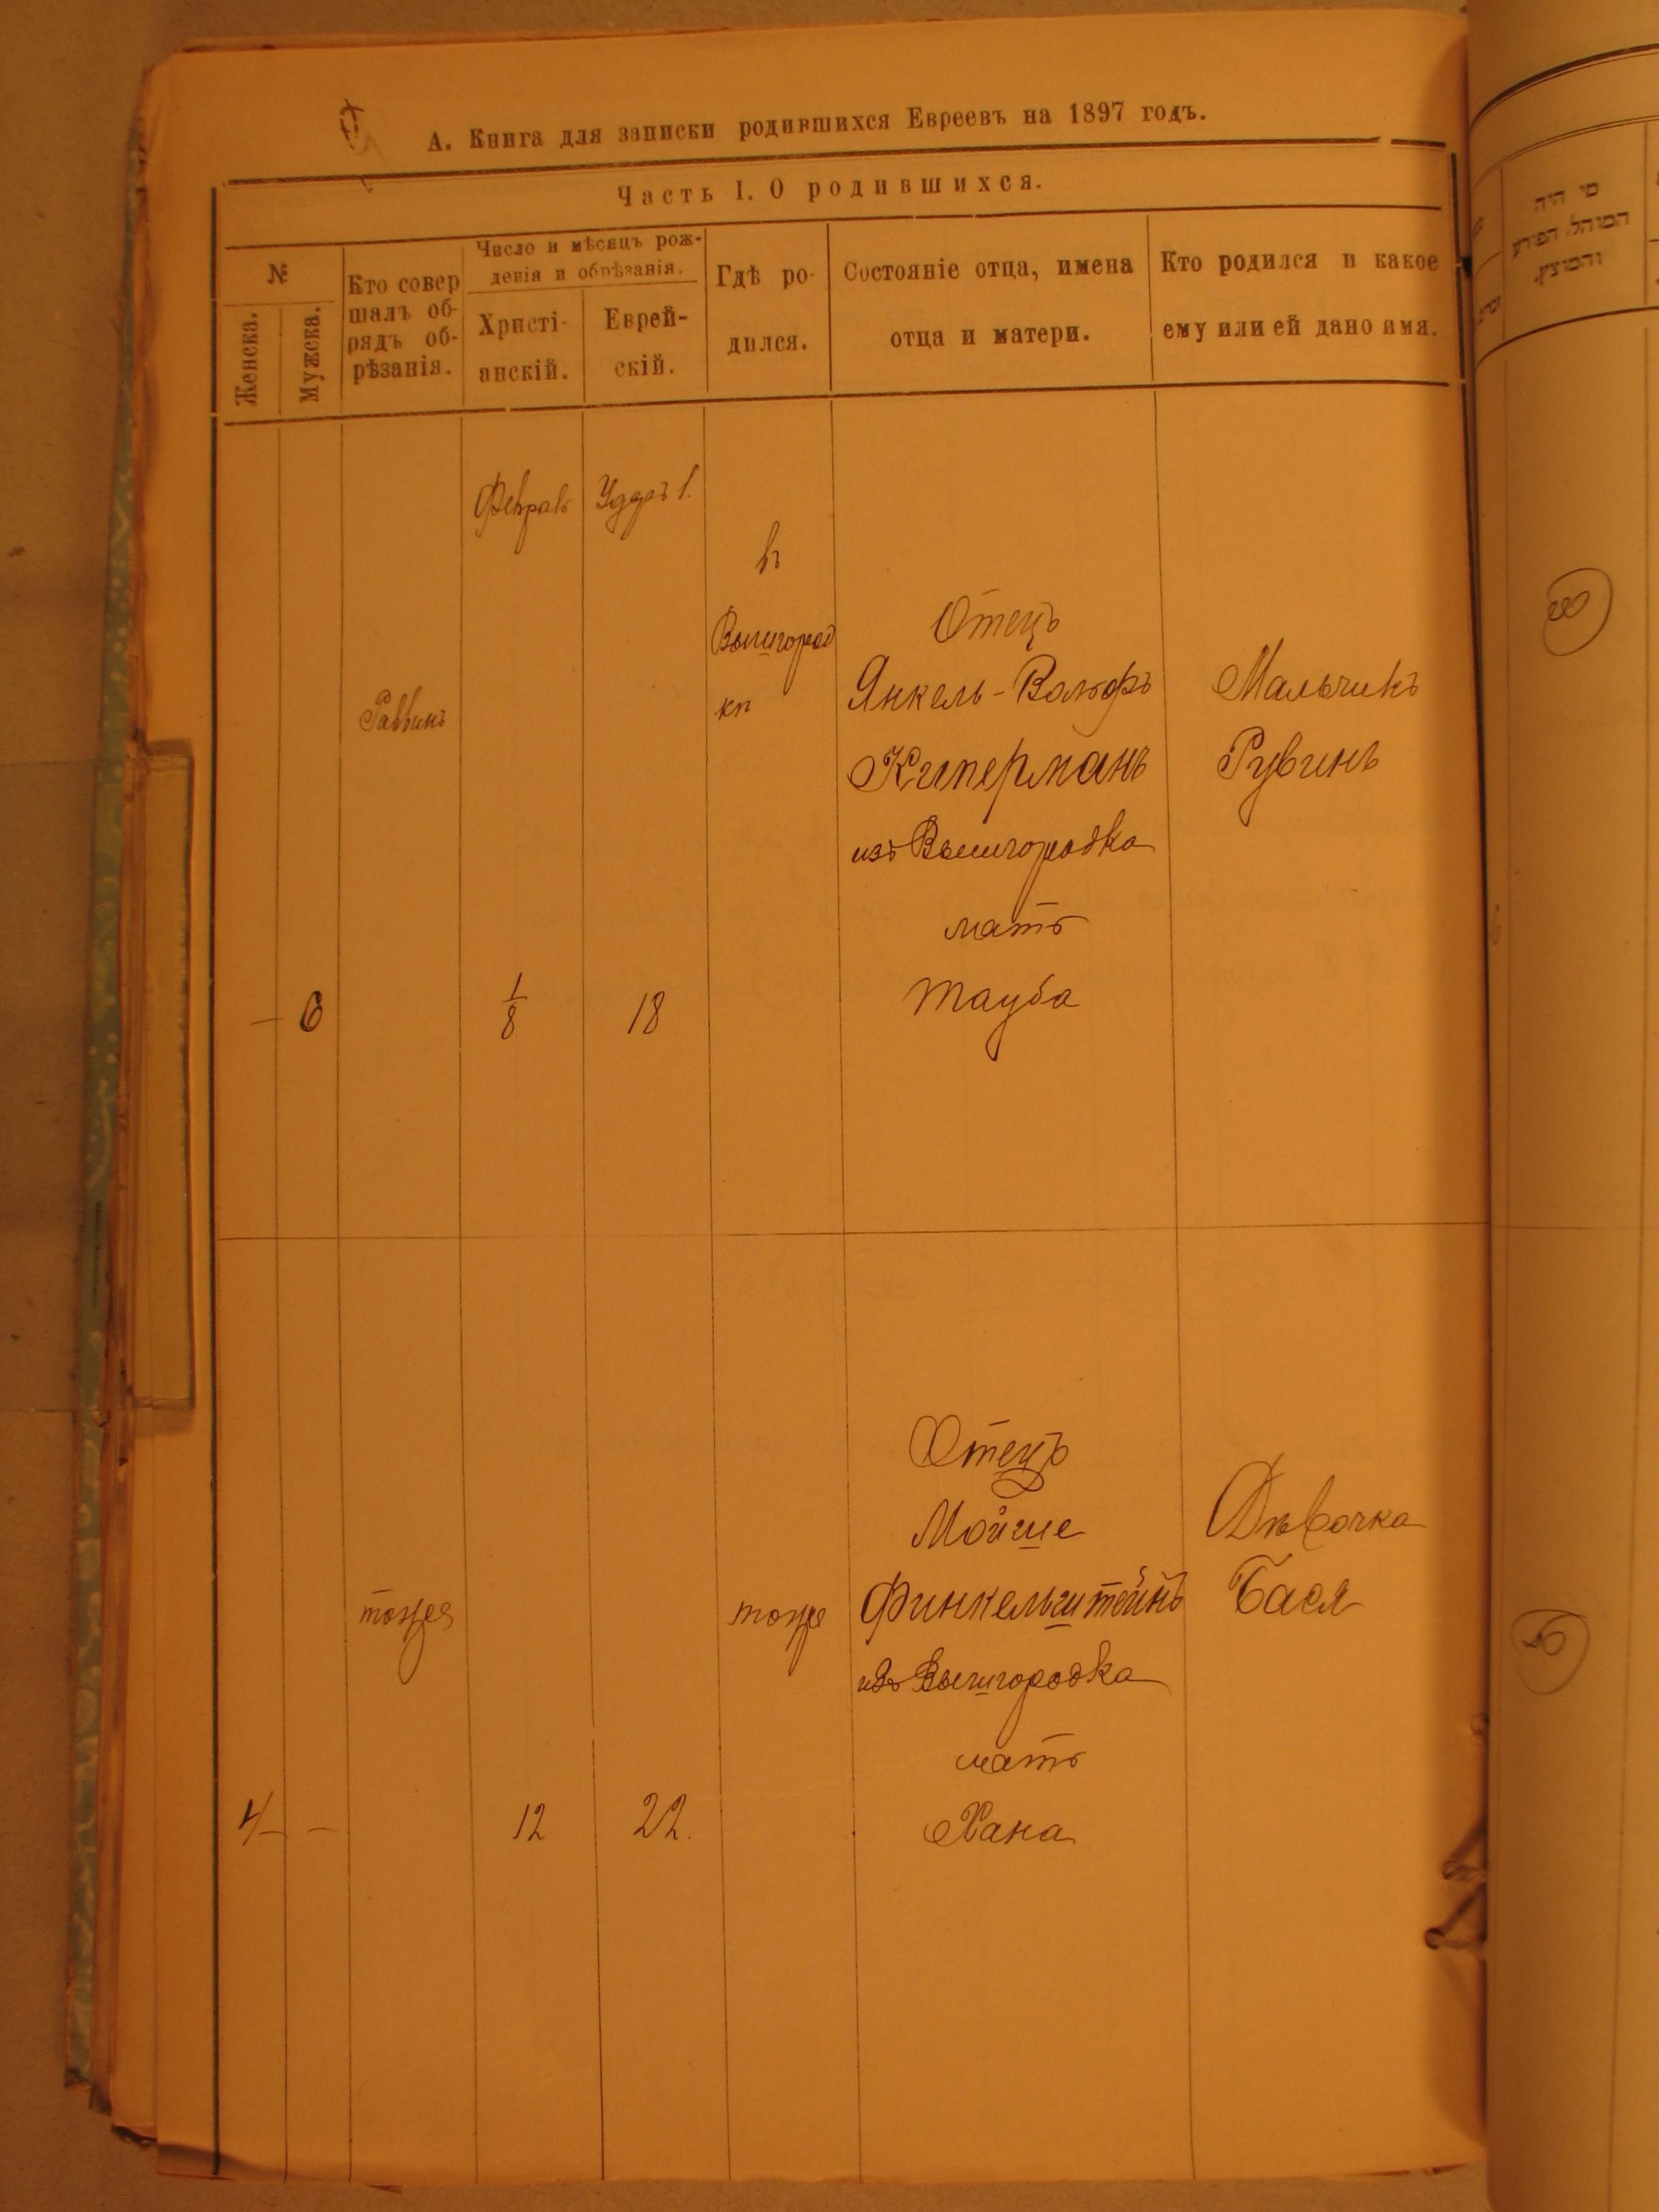 А. Книга для записки родившихся Евреевъ на 1897 годъ.
Часть I. О родившихся.
№
Женска.
Мужска.
Кто совер
шалъ об-
рядъ об-
рѣзанія.
Число и мѣсяцъ рож-
денія и обрѣзанія.
Христі-
анскій.
Еврей-
скій.
Гдѣ ро-
дился.
Состояніе отца, имена
отца и матери.
Кто родился и какое
ему или ей дано имя.
מי היה
המוהל, הפורע
והמוצץ.
— 6
Раввинъ
Феврал
1/8
18
въ
Вышгород
кѣ
Отецъ
Янкель-Вольфъ
Киперманъ
изъ Вышгородка
мать
Тауба
Мальчикъ
Рувинъ
4 — —
тоже
12
22.
тоже
Отецъ
Мойше
Финкельштейнъ
изъ Вышгородка
мать
Хана
Дѣвочка
Бася